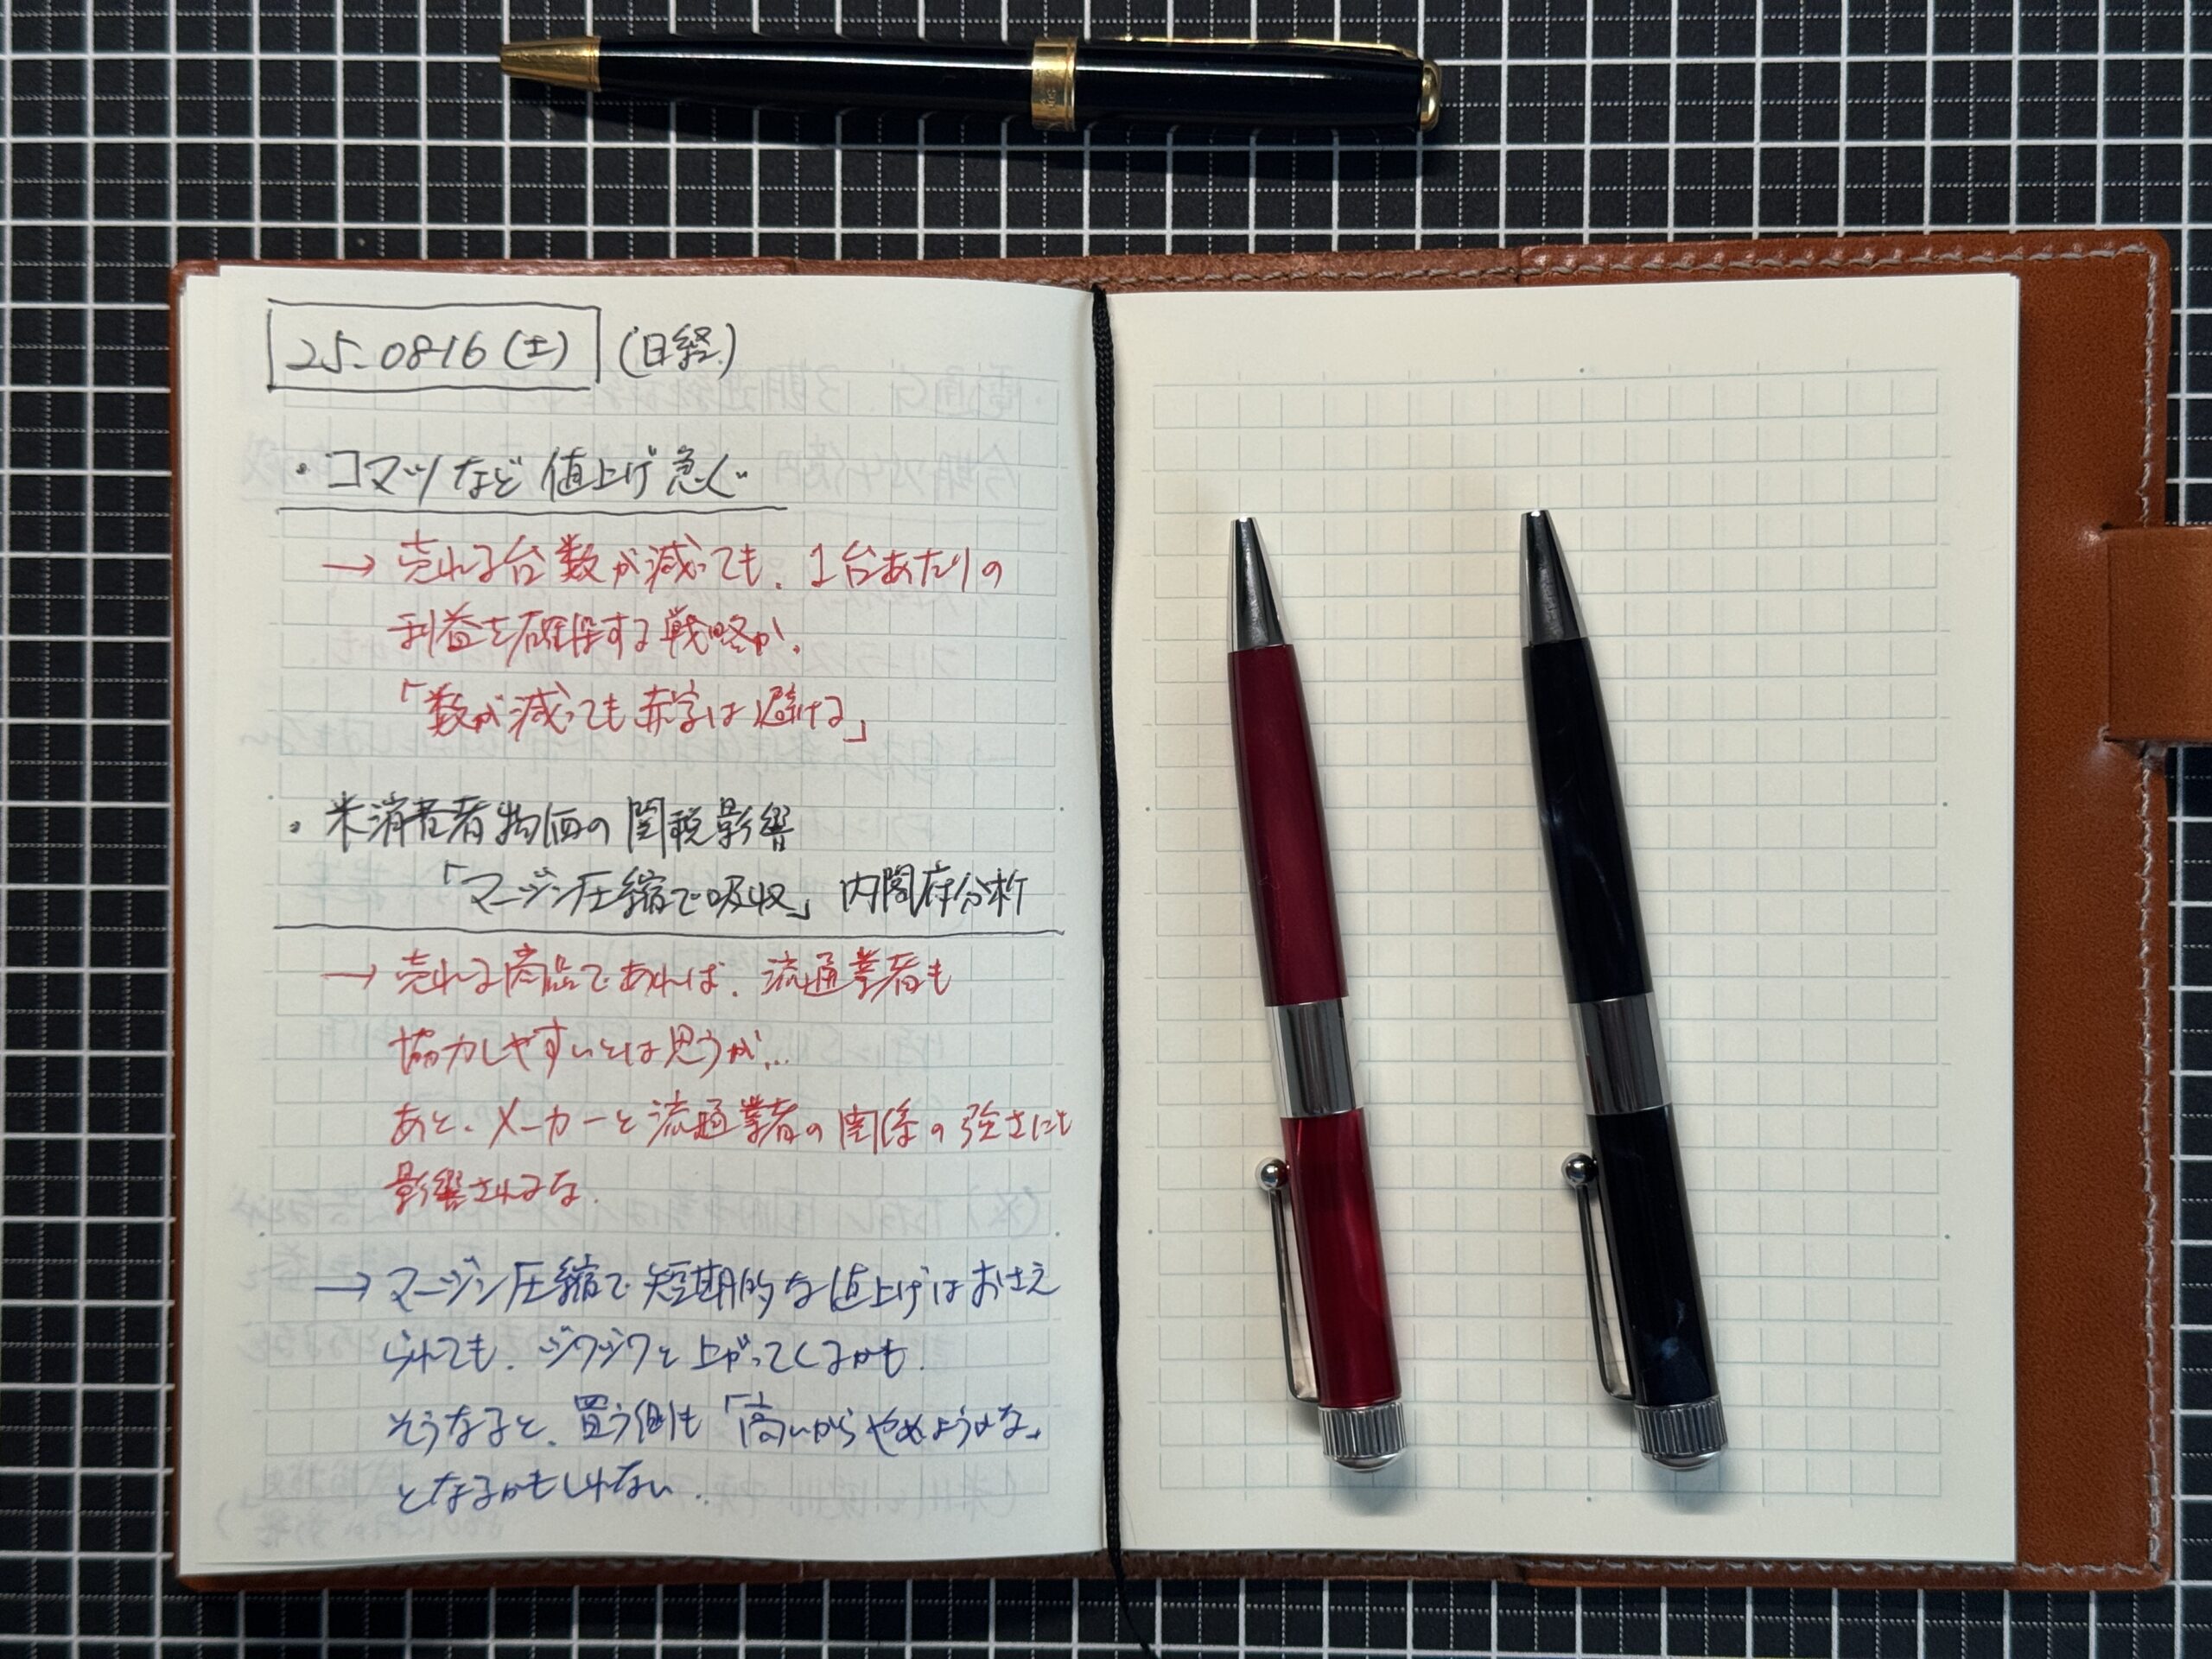 25.0816(土) (日経)
・コマツなど値上げ急ぐ
→売れる台数が減っても、1台あたりの
利益を確保する戦略か。
「数が減っても赤字は避ける」
・米消費者物価の関税影響
「マージン圧縮で吸収」内閣府分析
→売れる商品であれば、流通業者も
協力しやすいとは思うが...
あと、メーカーと流通業者の関係の強さにも
影響されるな。
→マージン圧縮で短期的な値上げはおさえ
られても、ジワジワと上がってくるかも。
そうなると、買う側も「高いからやめようかな」
となるかもしれない。